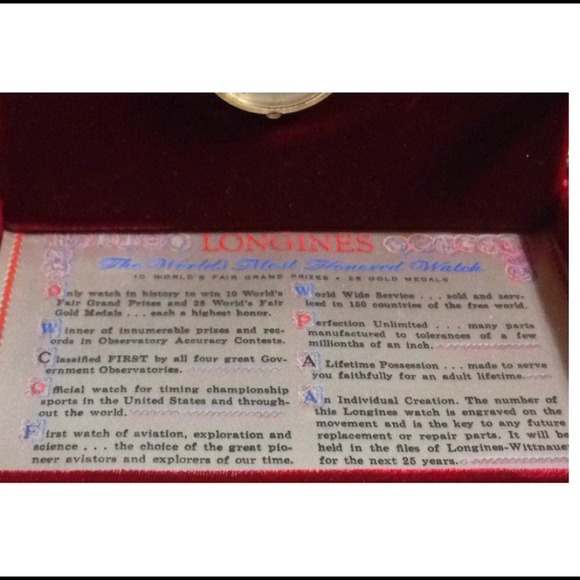 LONGINES
The World's Most Honored Watch
10 WORLD'S FAIR GRAND PRIZES • 28 GOLD MEDALS
Only watch in history to win 10 World's
Fair Grand Prizes and 28 World's Fair
Gold Medals . . . each a highest honor.
Winner of innumerable prizes and rec-
ords in Observatory Accuracy Contests.
Classified FIRST by all four great Gov-
ernment Observatories.
Official watch for timing championship
sports in the United States and through-
out the world.
First watch of aviation, exploration and
science . . . the choice of the great pio-
neer aviators and explorers of our time.
World Wide Service . . . sold and serv-
iced in 150 countries of the free world.
Perfection Unlimited . . . many parts
manufactured to tolerances of a few
millionths of an inch.
A Lifetime Possession . . . made to serve
you faithfully for an adult lifetime.
An Individual Creation. The number of
this Longines watch is engraved on the
movement and is the key to any future
replacement or repair parts. It will be
held in the files of Longines-Wittnauer
for the next 25 years.